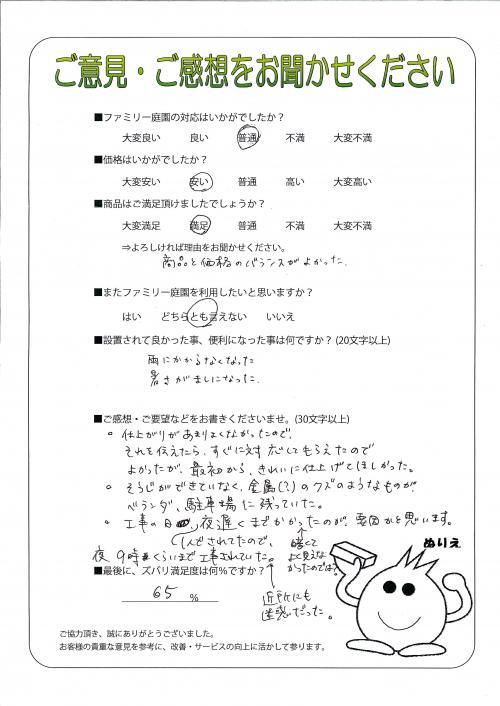 ご意見・ご感想をお聞かせください
■ファミリー庭園の対応はいかがでしたか?
大変良い 良い 普通 不満 大変不満
■価格はいかがでしたか?
大変安い 安い 普通 高い 大変高い
■商品はご満足頂けましたでしょうか?
大変満足 満足 普通 不満 大変不満
⇒よろしければ理由をお聞かせください。
商品と価格のバランスがよかった.
■またファミリー庭園を利用したいと思いますか?
はい どちらとも言えない いいえ
■設置されて良かった事、便利になった事は何ですか? (20文字以上)
雨にかからなくなった
暑さがましになった.
■ご感想・ご要望などをお書きくださいませ。(30文字以上)
○ 仕上がりがあまりよくなかったので、
それを伝えたら、すぐに対応してもらえたので
よかったが、最初から、きれいに仕上げてほしかった。
○ そうじができていなく、金属(?)のクズのようなものが
ベランダ、駐車場に残っていた。
○ 工事の日 、夜遅くまでかかったのが、要因かと思います。
1人でされてたので、
暗くて
よく見えな
かったのでは?
夜9時くらいまで工事されていた。
近所にも
迷惑だった。
■最後に、ズバリ満足度は何%ですか?
65 %
ぬりえ
ご協力頂き、誠にありがとうございました。
お客様の貴重な意見を参考に、改善・サービスの向上に活かして参ります。